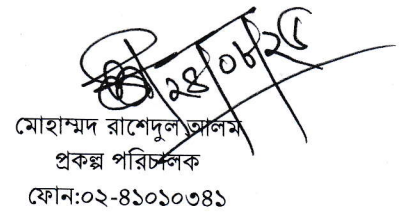 ২৪/০৮/২৫
মোহাম্মদ রাশেদুল আলম
প্রকল্প পরিচালক
ফোন:০২-৪১০১০৩৪১